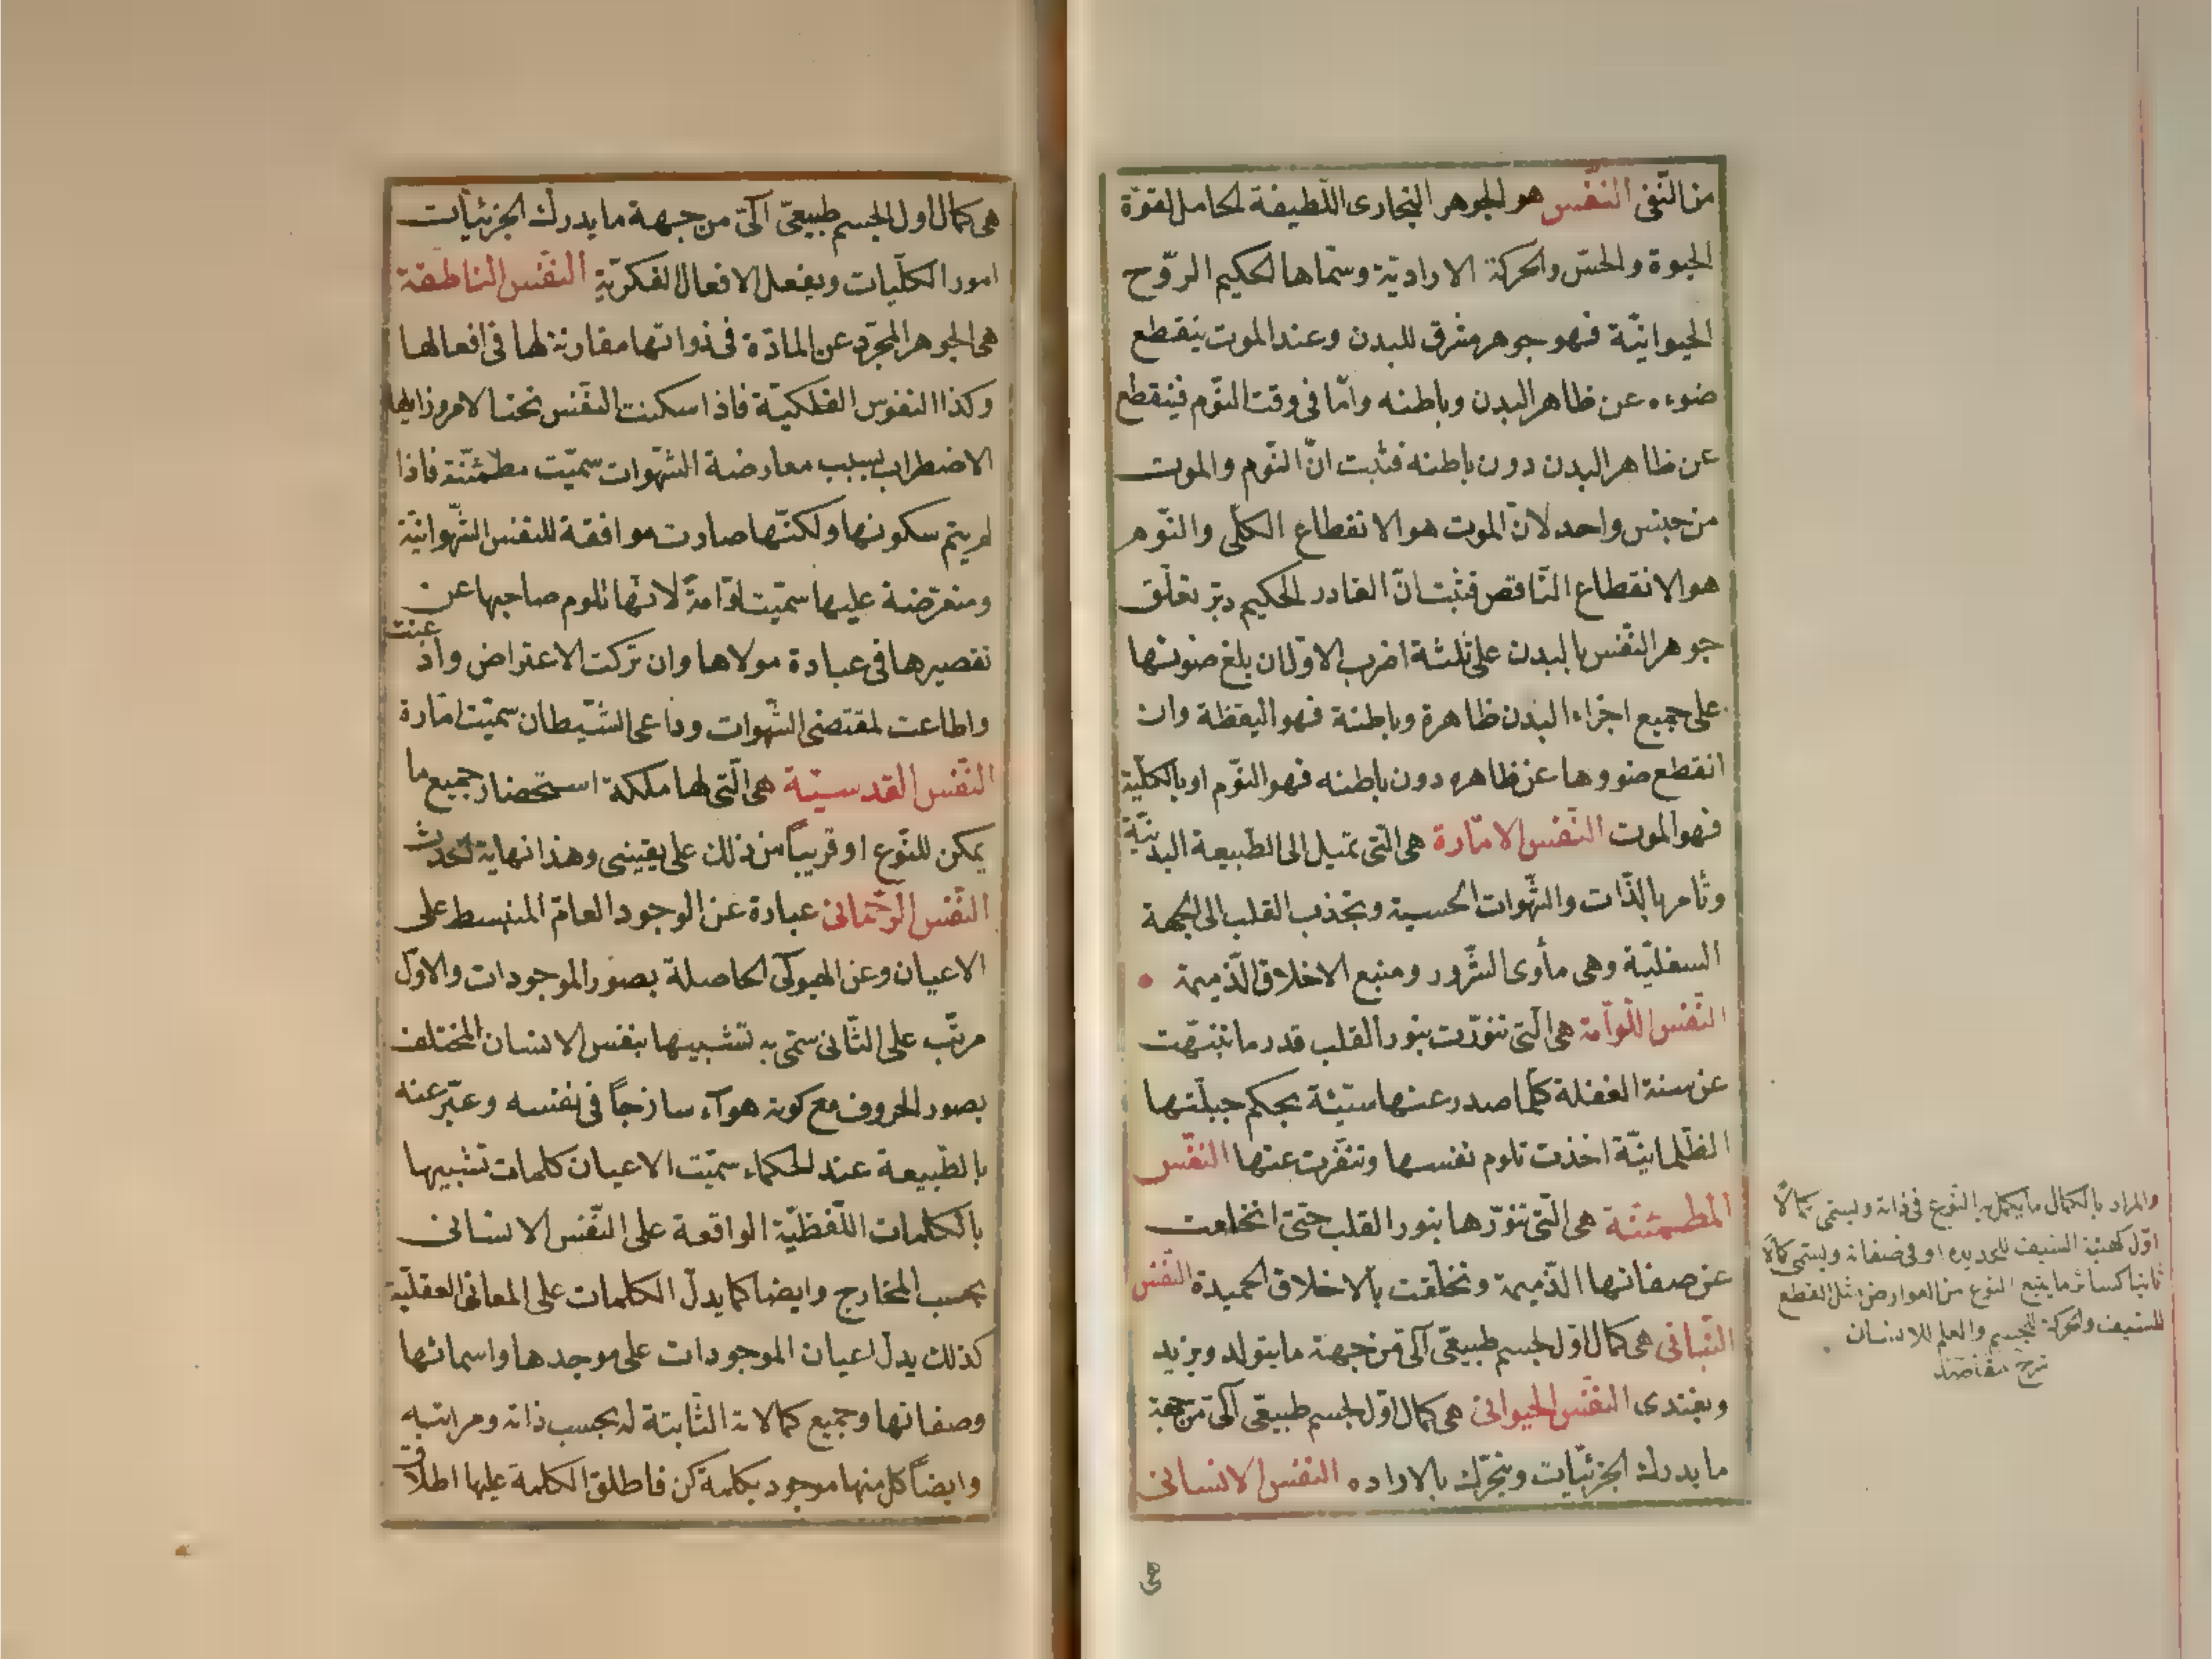 من النفى النّفس هو الجوهر البخارى اللّطيفة الحامل لقوّة
الحيوة والحسّ والحركة الاراديّة وسمّاها الحكيم الرّوح
الحيوانيّة فهو جوهر مشرق للبدن وعند الموت ينقطع
ضوءه عن ظاهر البدن وباطنه وامّا فى وقت النّوم فينقطع
عن ظاهر البدن دون باطنه فثبت انّ النّوم والموت
من جنس واحد لانّ الموت هو الانقطاع الكلّى والنّوم
هو الانقطاع النّاقص فثبت انّ القادر الحكيم دبّر تعلّق
جوهر النّفس بالبدن على ثلثة اضرب الاوّل ان بلغ ضوئها
على جميع اجزاء البدن ظاهرة وباطنة فهو اليقظة وان
انقطع ضووها عن ظاهره دون باطنه فهو النّوم او بالكلّيّة
فهو الموت النّفس الامّارة هى الّتى تميل الى الطّبيعة البدنيّة
وتأمر بالذّات والشّهوات الحسية وتجذب القلب الى الجهة
السفليّة وهى مأوى الشّرور ومنبع الاخلاق الذّميمة
النّفس اللّوّامة هى الّتى تنوّرت بنور القلب قدر ما تنبّهت
عن سنة الغفلة كلّما صدر عنها سيّئة بحكم جبلّتها
الظّلمانيّة اخذت تلوم نفسها وتنفّرت عنها النّفس
المطمئنّة هى الّتى تنوّرها بنور القلب حتّى انخلعت
عن صفاتها الذّميمة وتخلّقت بالاخلاق الحميدة النّفس
النّباتى هى كمال اوّل لجسم طبيعىّ آلىّ من جهة ما يتولد ويزيد
ويغتدى النّفس الحيوانى هى كمال اوّل لجسم طبيعىّ آلىّ من جهة
ما يدرك الجزئيّات ويتحرّك بالاراده النّفس الانسانى
هى
والمراد بالكمال ما يكمل به النّوع فى ذاته ويسمّى كمالًا
اوّل كهيئة السّيف للحديد او فى صفاته ويسمّى كمالًا
ثانيا كسائر ما يتبع النوع من العوارض مثل القطع
للسّيف والحركة للجسم والعلم للانسان
شرح مقاصد
هى كمال اول لجسم طبيعىّ آلىّ من جهة ما يدرك الجزئيّات
امور الكلّيات ويفعل الافعال الفكريّة النفّس النّاطقة
هى الجوهر المجرّد عن المادّة فى ذواتها مقارنة لها فى افعالها
وكذا النفوس الفلكيّة فاذا سكنت النّفس تحت الامر وزايلها
الاضطراب بسبب معارضة الشّهوات سمّيت مطمئنّة فاذا
لم يتم سكونها ولكنّها صارت موافقة للنفس الشّهوانيّة
ومتعرّضة عليها سمّيت لوّامة لانّها تلوم صاحبها عن
تقصيرها فى عبادة مولاها وان تركت الاعتراض واذعنت
واطاعت لمقتضى الشّهوات وداعى الشّيطان سمّيت امّارة
النّفس القدسيّة هى الّتى لها ملكة استحضار جميع ما
يمكن للنّوع او قريبًا من ذلك على يقينى وهذا نهاية الحدث
النّفس الرّحمانى عبارة عن الوجود العامّ المنبسط على
الاعيان وعن الهيولى الحاصلة بصور الموجودات والاوّل
مرتّب على الثّانى سمّى به تشبيها بنفس الانسان المختلف
بصور الحروف مع كونه هوآء ساذجًا فى نفسه وعبّر عنه
بالطّبيعة عند الحكماء سمّيت الاعيان كلمات تشبيها
بالكلمات اللّفظيّة الواقعة على النّفس الانسانى
بحسب المخارج وايضا كما يدلّ الكلمات على المعانى العقليّة
كذلك يدلّ اعيان الموجودات على موجدها واسمائها
وصفاتها وجميع كمالاته الثّابتة له بحسب ذاته ومراتبه
وايضًا كل منها موجود بكلمة كن فاطلق الكلمة عليها اطلاق